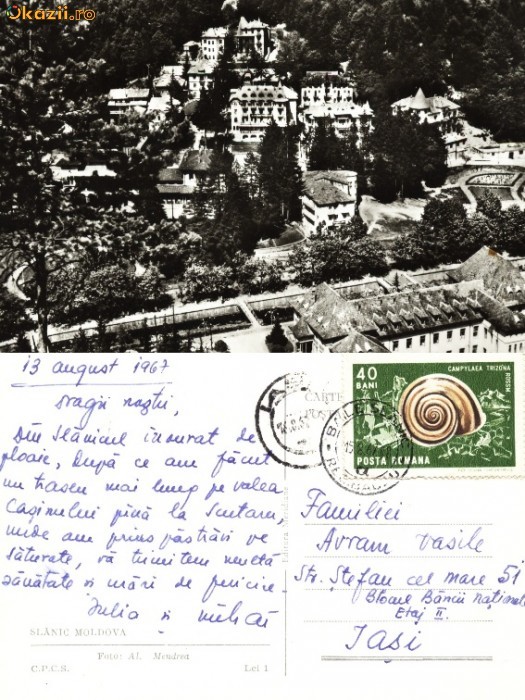 Okazii.ro
13 august 1967
Dragii noștri,
Din Slănicul înourat de
ploaie, după ce am făcut
un traseu mai lung pe valea
Cașinului pînă la
unde am prins păstrăvi pe
săturate, vă trimitem multă
sănătate și mări de fericire.
Iulia și Mihai
SLĂNIC MOLDOVA
Foto: Al. Mendrea
C.P.C.S.
Lei 1
CARTE
POȘTALĂ
40
BANI
CAMPYLAEA TRIZONA
ROSSM
POSTA ROMANA
Familiei
Avram Vasile
Str. Ștefan cel mare 51
Blocul Băncii Naționale
Etaj II.
Iași